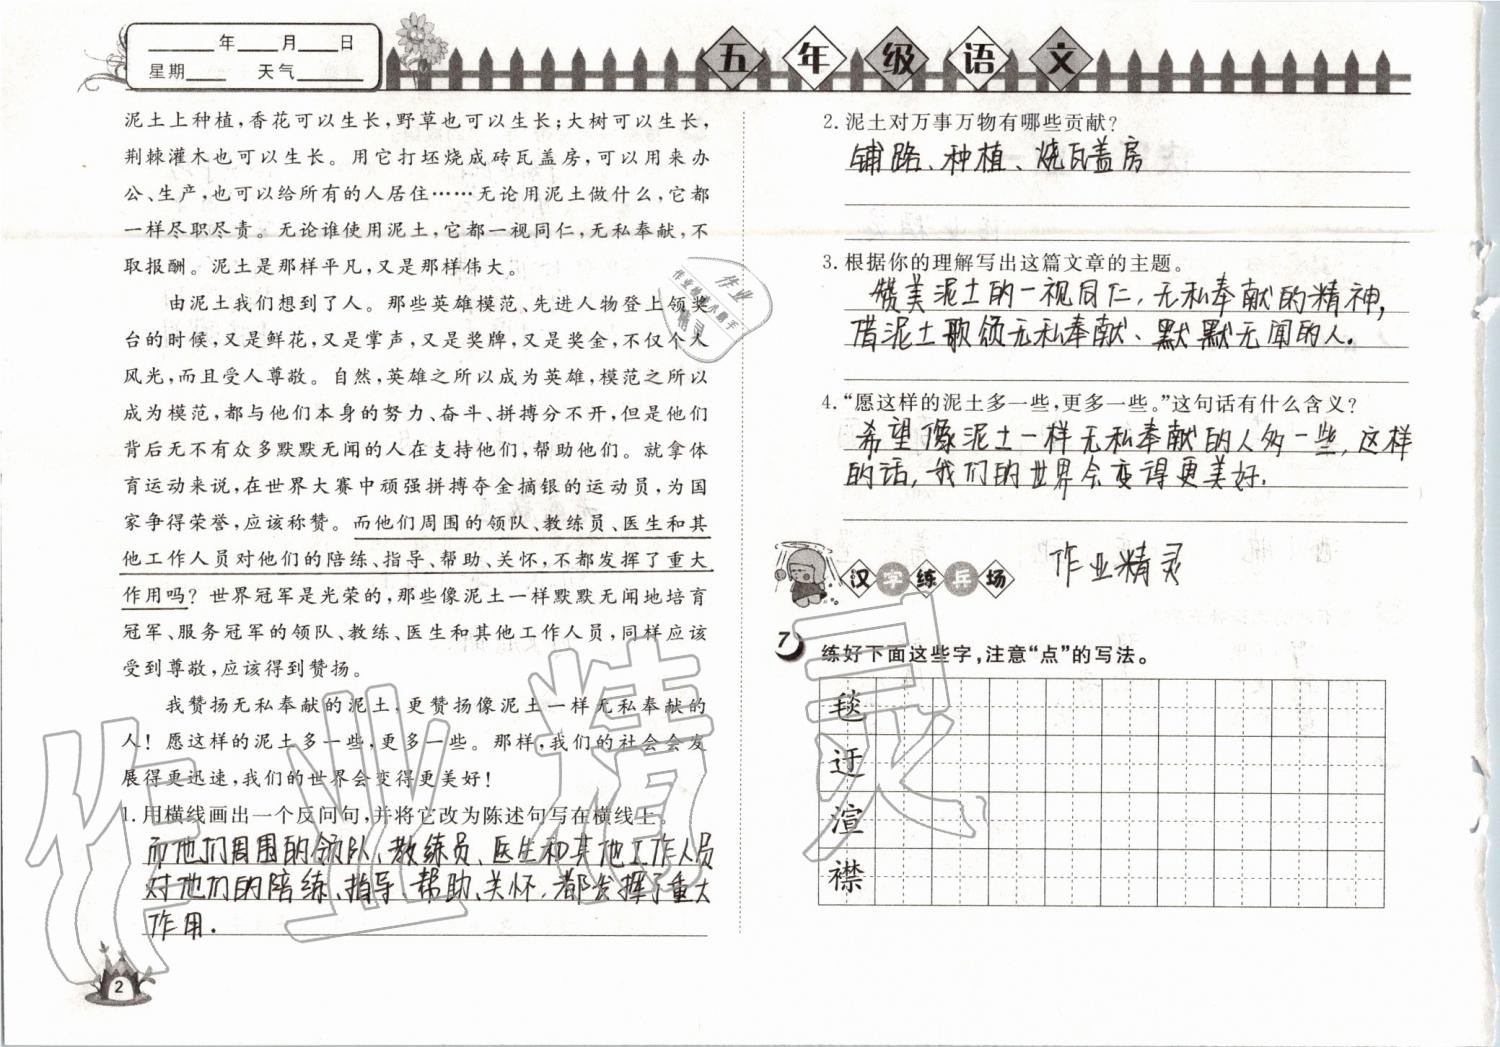 ____年____月____日
星期____ 天气____
五年级语文
泥土上种植,香花可以生长,野草也可以生长;大树可以生长,
荆棘灌木也可以生长。用它打坯烧成砖瓦盖房,可以用来办
公、生产,也可以给所有的人居住……无论用泥土做什么,它都
一样尽职尽责。无论谁使用泥土,它都一视同仁,无私奉献,不
取报酬。泥土是那样平凡,又是那样伟大。
由泥土我们想到了人。那些英雄模范、先进人物登上领奖
台的时候,又是鲜花,又是掌声,又是奖牌,又是奖金,不仅个人
风光,而且受人尊敬。自然,英雄之所以成为英雄,模范之所以
成为模范,都与他们本身的努力、奋斗、拼搏分不开,但是他们
背后无不有众多默默无闻的人在支持他们,帮助他们。就拿体
育运动来说,在世界大赛中顽强拼搏夺金摘银的运动员,为国
家争得荣誉,应该称赞。而他们周围的领队、教练员、医生和其
他工作人员对他们的陪练、指导、帮助、关怀,不都发挥了重大
作用吗?世界冠军是光荣的,那些像泥土一样默默无闻地培育
冠军、服务冠军的领队、教练、医生和其他工作人员,同样应该
受到尊敬,应该得到赞扬。
我赞扬无私奉献的泥土,更赞扬像泥土一样无私奉献的
人!愿这样的泥土多一些,更多一些。那样,我们的社会会发
展得更迅速,我们的世界会变得更美好!
1. 用横线画出一个反问句,并将它改为陈述句写在横线上。
而他们周围的领队、教练员、医生和其他工作人员
对他们的陪练、指导、帮助、关怀,都发挥了重大
作用.
2
2. 泥土对万事万物有哪些贡献?
铺路、种植、烧瓦盖房
3. 根据你的理解写出这篇文章的主题。
赞美泥土的一视同仁,无私奉献的精神,
借泥土歌颂无私奉献、默默无闻的人.
4. “愿这样的泥土多一些,更多一些。”这句话有什么含义?
希望像泥土一样无私奉献的人多一些,这样
的话,我们的世界会变得更美好.
汉字练兵场
作业精灵
7 练好下面这些字,注意“点”的写法。
毯
迂
渲
襟
作业精灵
作业
精灵